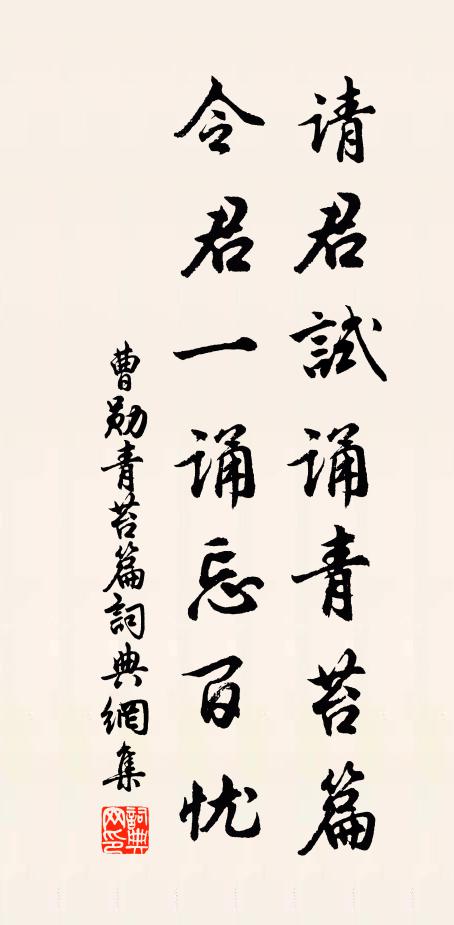 请君試诵青苔篇
令君一诵忘百忧
曹勋青苔篇詞典網集
詞典
网印